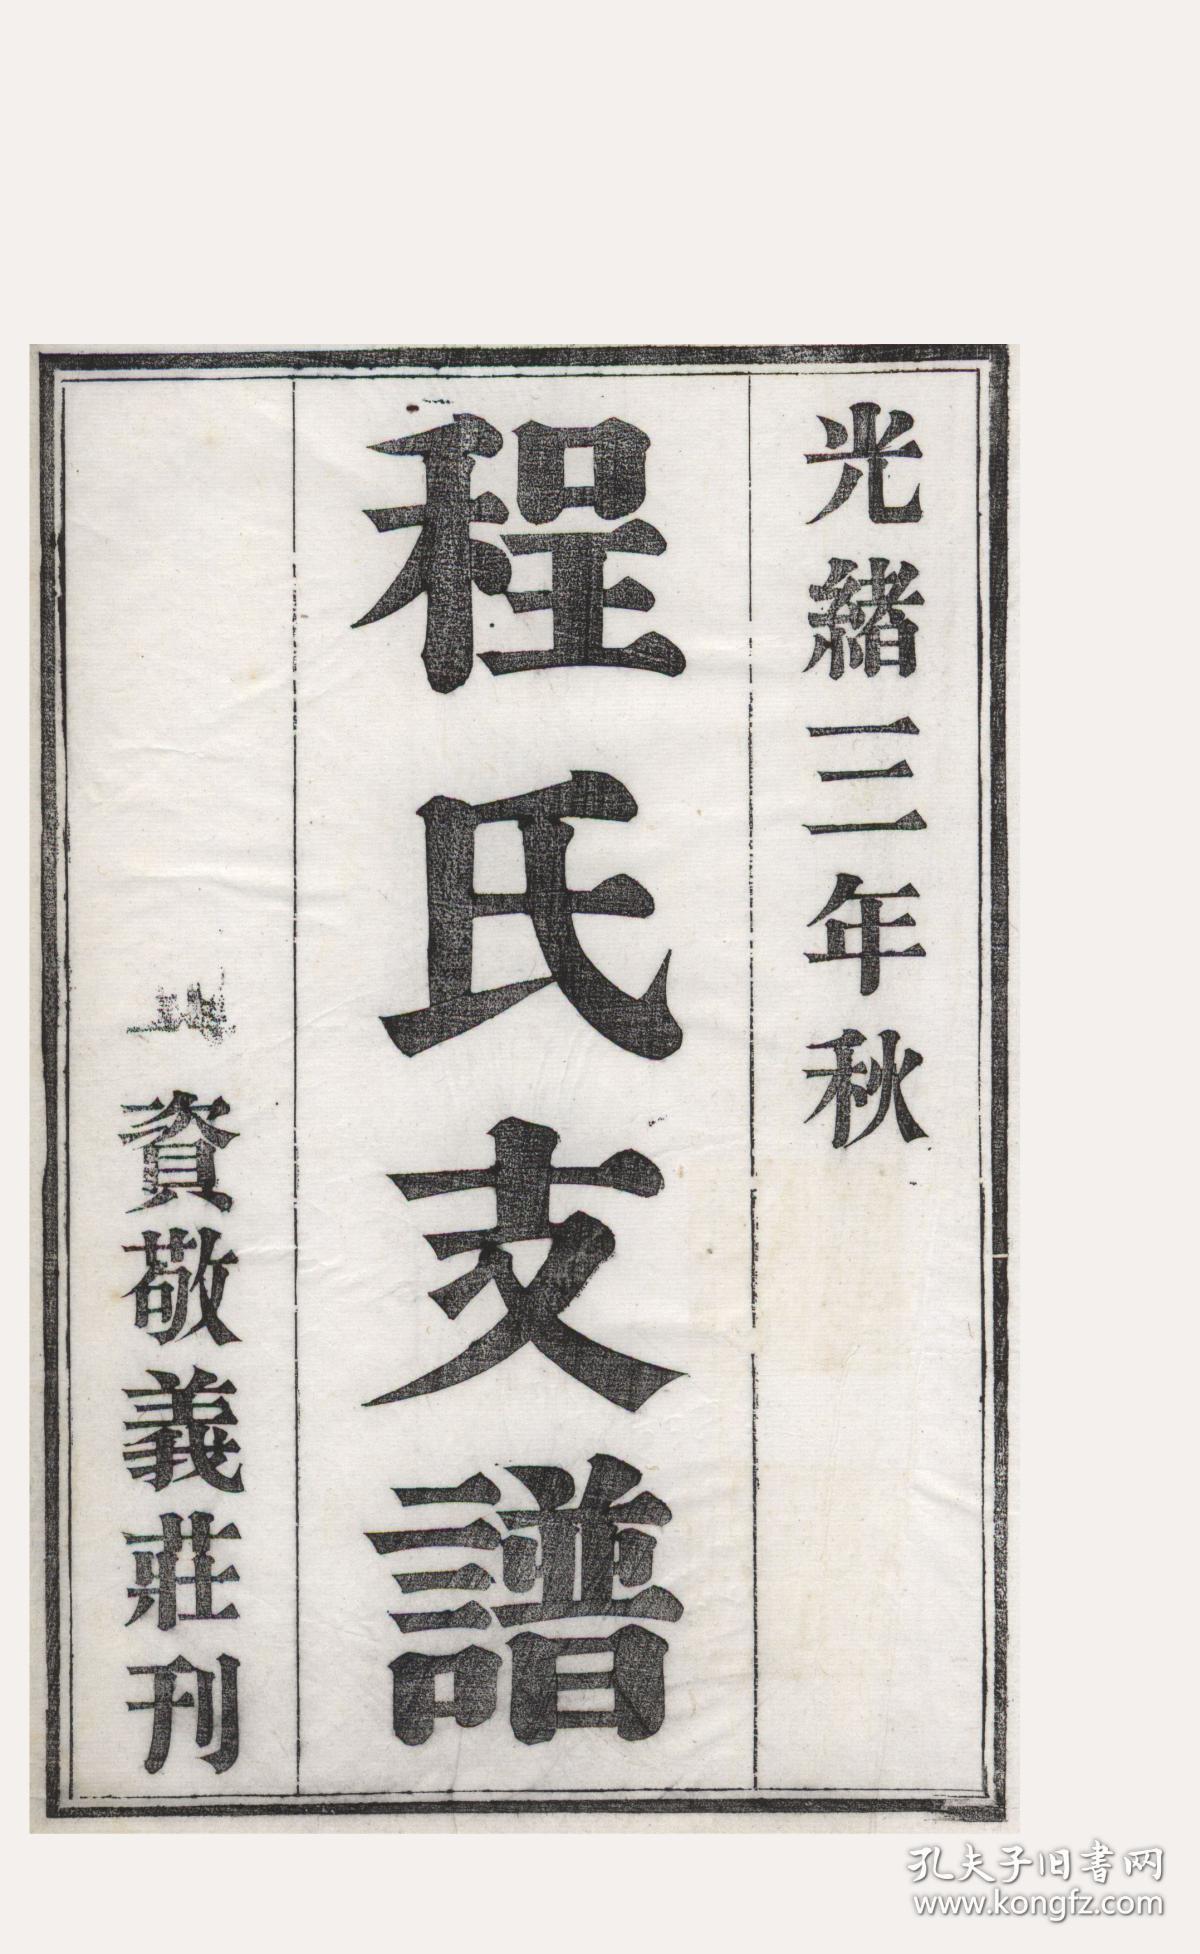 光緒三年秋
程氏支譜
資敬義莊刊
孔夫子旧書网
www.kongfz.com